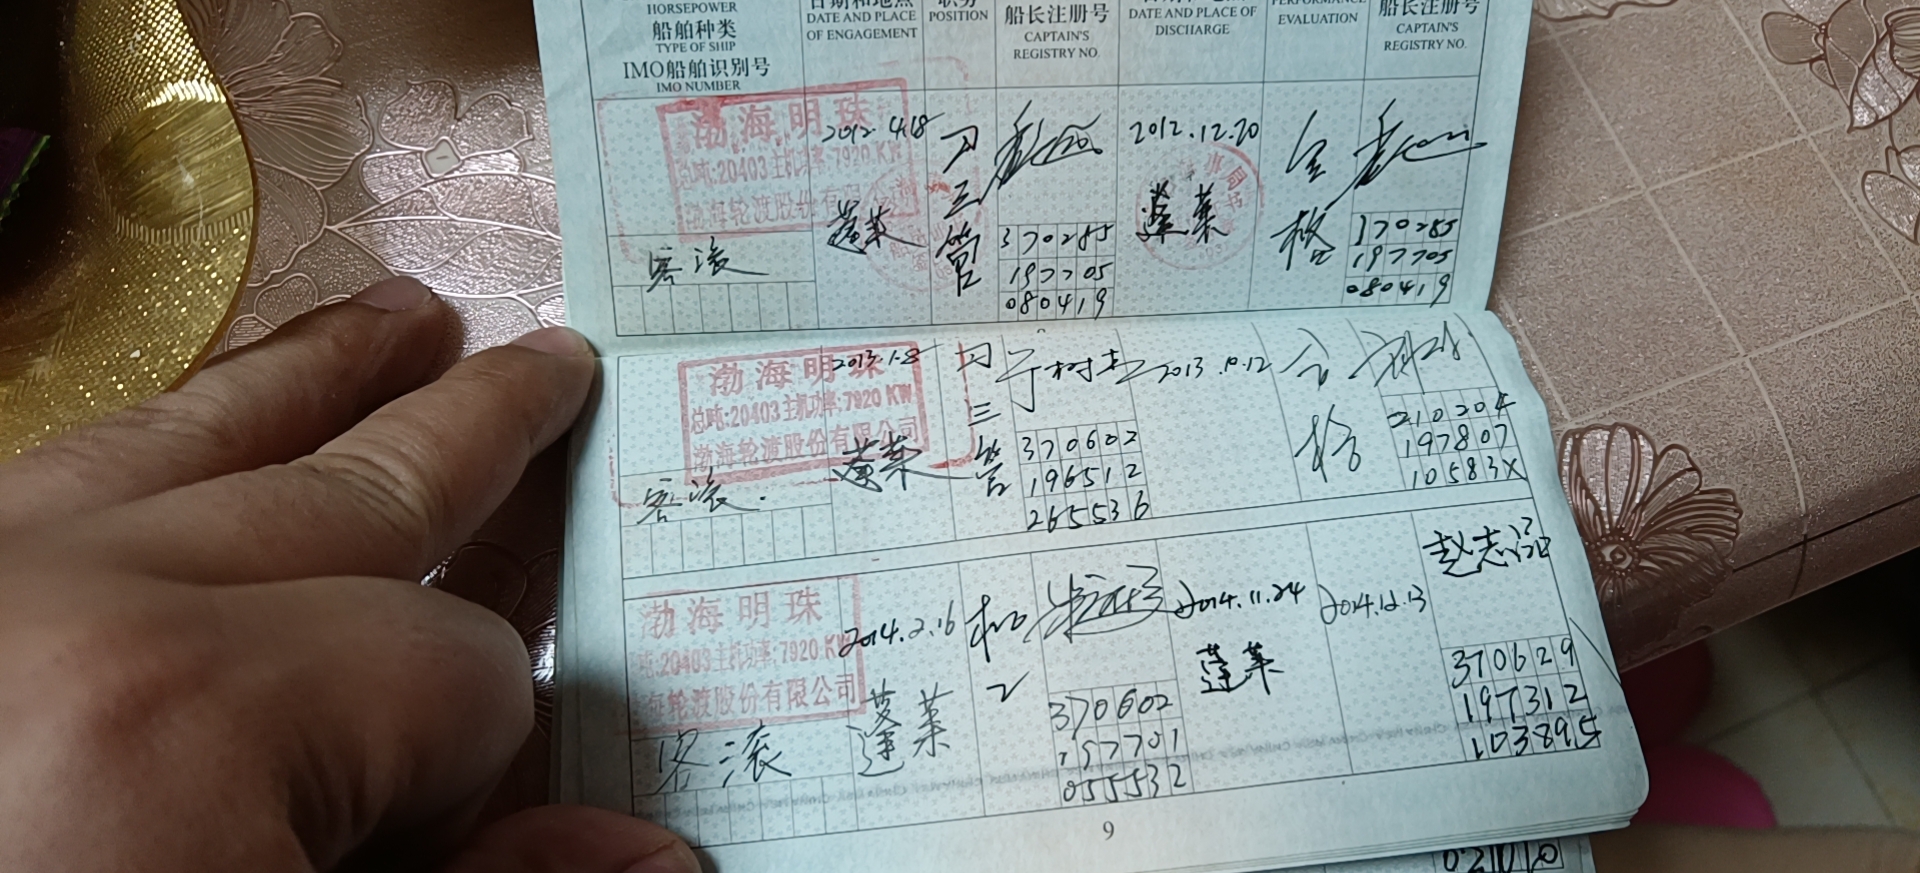 HORSEPOWER
船舶种类
TYPE OF SHIP
IMO船舶识别号
IMO NUMBER
日期和地点
DATE AND PLACE
OF ENGAGEMENT
职务
POSITION
船长注册号
CAPTAIN'S
REGISTRY NO.
DATE AND PLACE OF
DISCHARGE
PERFORMANCE
EVALUATION
船长注册号
CAPTAIN'S
REGISTRY NO.
渤海明珠
总吨:20403 主机功率:7920 KW
渤海轮渡股份有限公司
客滚
2012.4.18
蓬莱
三管
370285
197705
080419
2012.12.20
蓬莱
合格
370285
197705
080419
渤海明珠
总吨:20403 主机功率:7920 KW
渤海轮渡股份有限公司
客滚
2013.1.8
蓬莱
三管
370602
196512
265536
2013.10.12
合格
210204
197807
10583X
渤海明珠
吨:20403 主机功率:7920 KW
海轮渡股份有限公司
客滚
2014.2.16
蓬莱
370602
197701
055532
2014.11.24
蓬莱
2014.12.13
赵志
370629
197312
103895
9